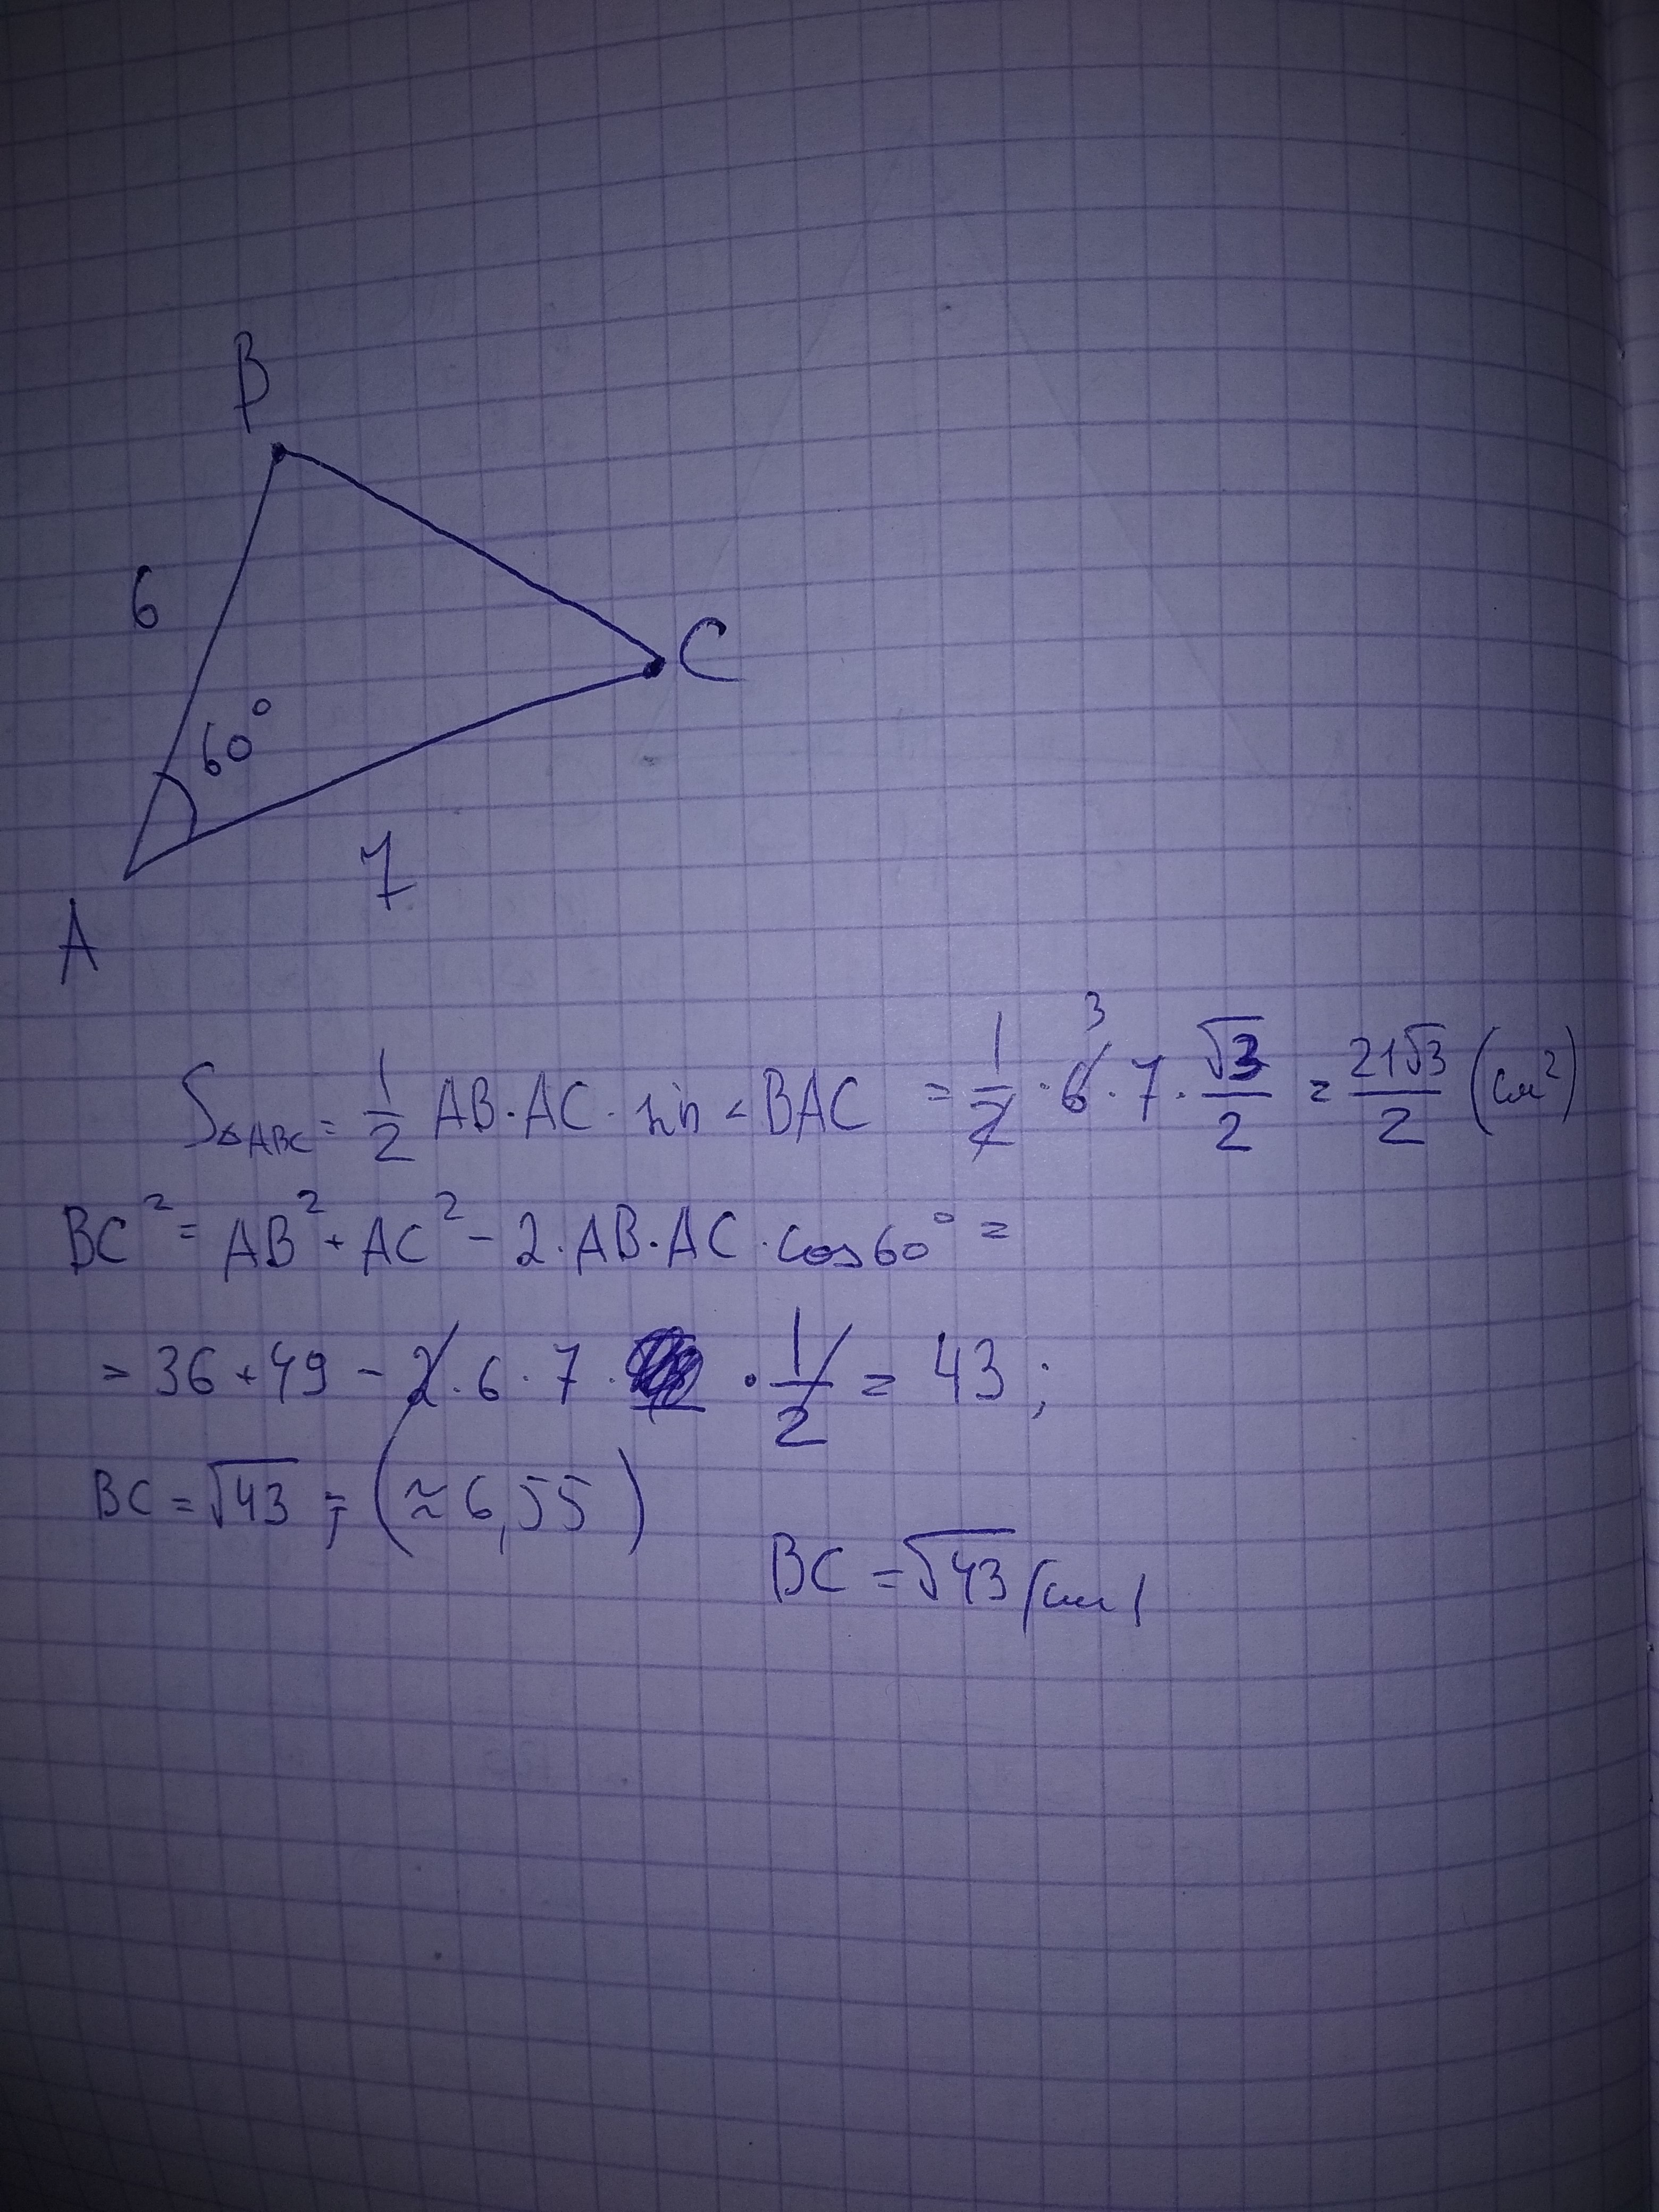 B
6
C
60°
7
A
S△ABC = 1/2 AB·AC·sin∠BAC = 1/2 · 6 3 · 7 · √3/2 = 21√3/2 (см²)
BC² = AB² + AC² - 2·AB·AC·cos60° =
= 36 + 49 - 2·6·7· · 1/2 = 43;
BC = √43 ; (≈ 6,55)
BC = √43 (см)